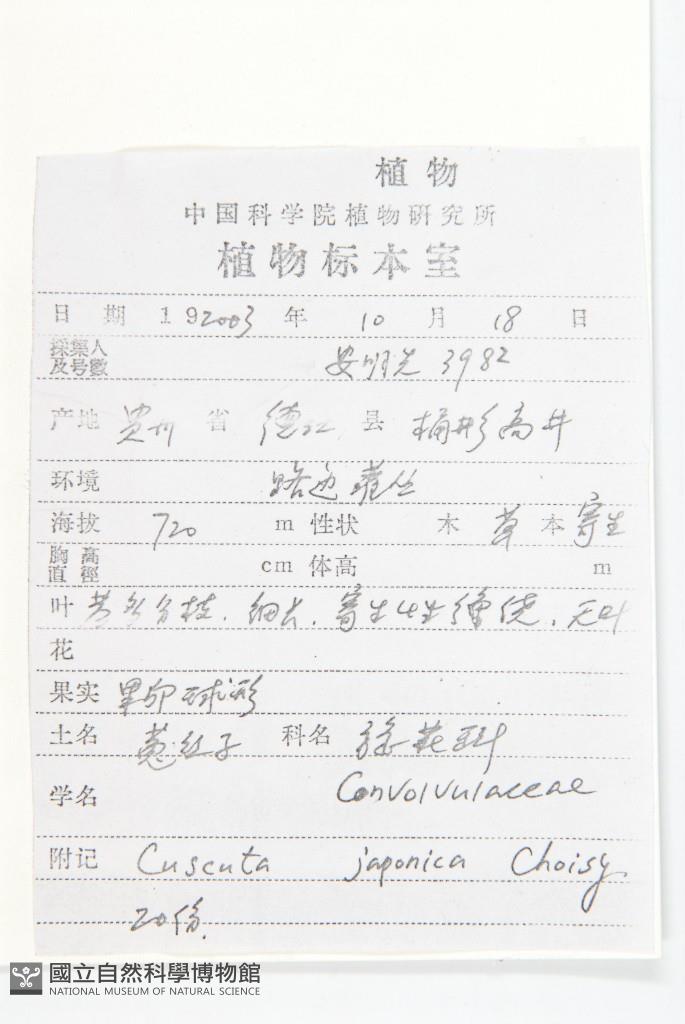 植物
中国科学院植物研究所
植物标本室
日期 192003 年 10 月 18 日
採集人及号数 安明光 3982
产地 贵州 省 德江 县 桶形高井
环境 路边灌丛
海拔 720 m 性状 木 草本 寄生
胸高直徑 cm 体高 m
叶 茎多分枝. 细长. 寄生 缠绕. 无叶
花
果实 果卵球形
土名 菟丝子 科名 旋花科
学名 Convolvulaceae
附记 Cuscuta japonica Choisy
20份.
國立自然科學博物館
NATIONAL MUSEUM OF NATURAL SCIENCE